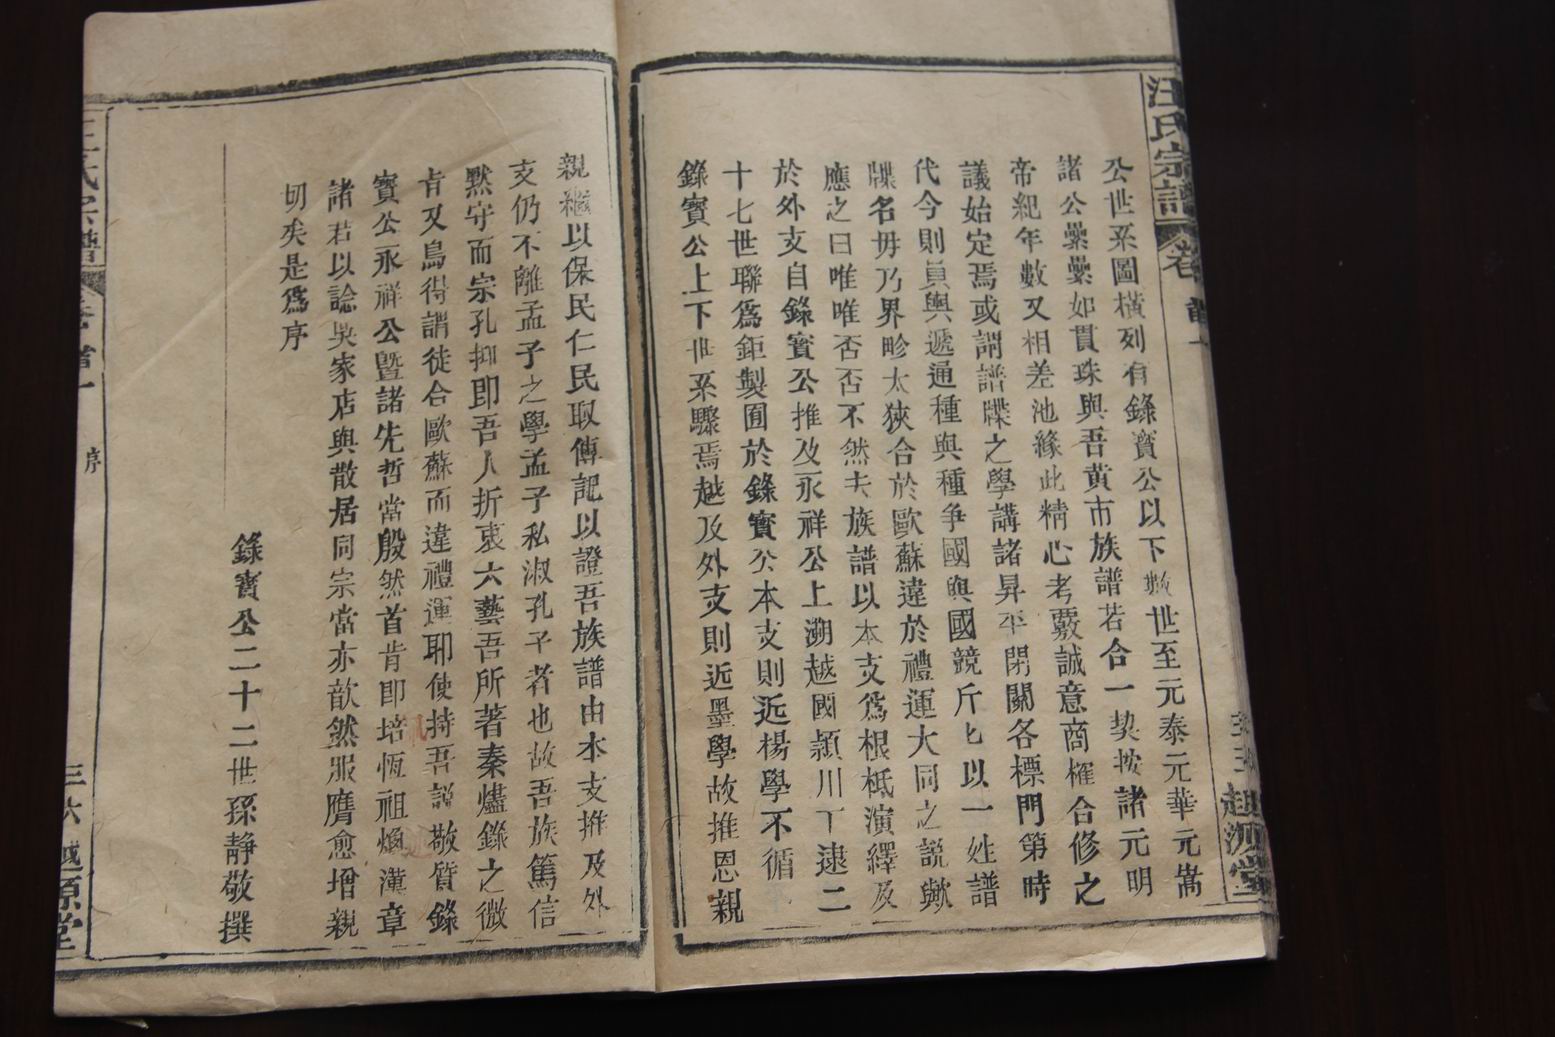 汪氏宗譜
卷首一
公世系圖橫列有錄寶公以下數世至元泰元華元嵩
諸公纍纍如貫珠與吾黃市族譜若合一契按諸元明
帝紀年數又相差池緣此精心考覈誠意商榷合修之
議始定焉或謂譜牒之學講諸昇平閉關各標門第時
代今則員輿遞通種與種爭國與國競斤匕以一姓譜
牒名毋乃界畛太狹合於歐蘇違於禮運大同之說歟
應之曰唯唯否否不然夫族譜以本支爲根柢演繹及
於外支自錄寶公推及永祥公上溯越國潁川丅逮二
十七世聯爲鉅製囿於錄寶公本支則近楊學不循
錄寶公上下世系驟焉越及外支則近墨學故推恩親
親繼以保民仁民取傳記以證吾族譜由本支推及外
支仍不離孟子之學孟子私淑孔子者也故吾族篤信
默守而宗孔抑即吾人折衷六藝吾所著秦燼錄之微
旨又烏得謂徒合歐蘇而違禮運耶使持吾說敬質錄
寶公永祥公暨諸先哲當殷然首肯即培恆祖煥漢章
諸君以諗吳家店與散居同宗當亦歆然服膺愈增親
切矣是爲序
錄寶公二十二世孫靜敬撰
序
三六
越源堂